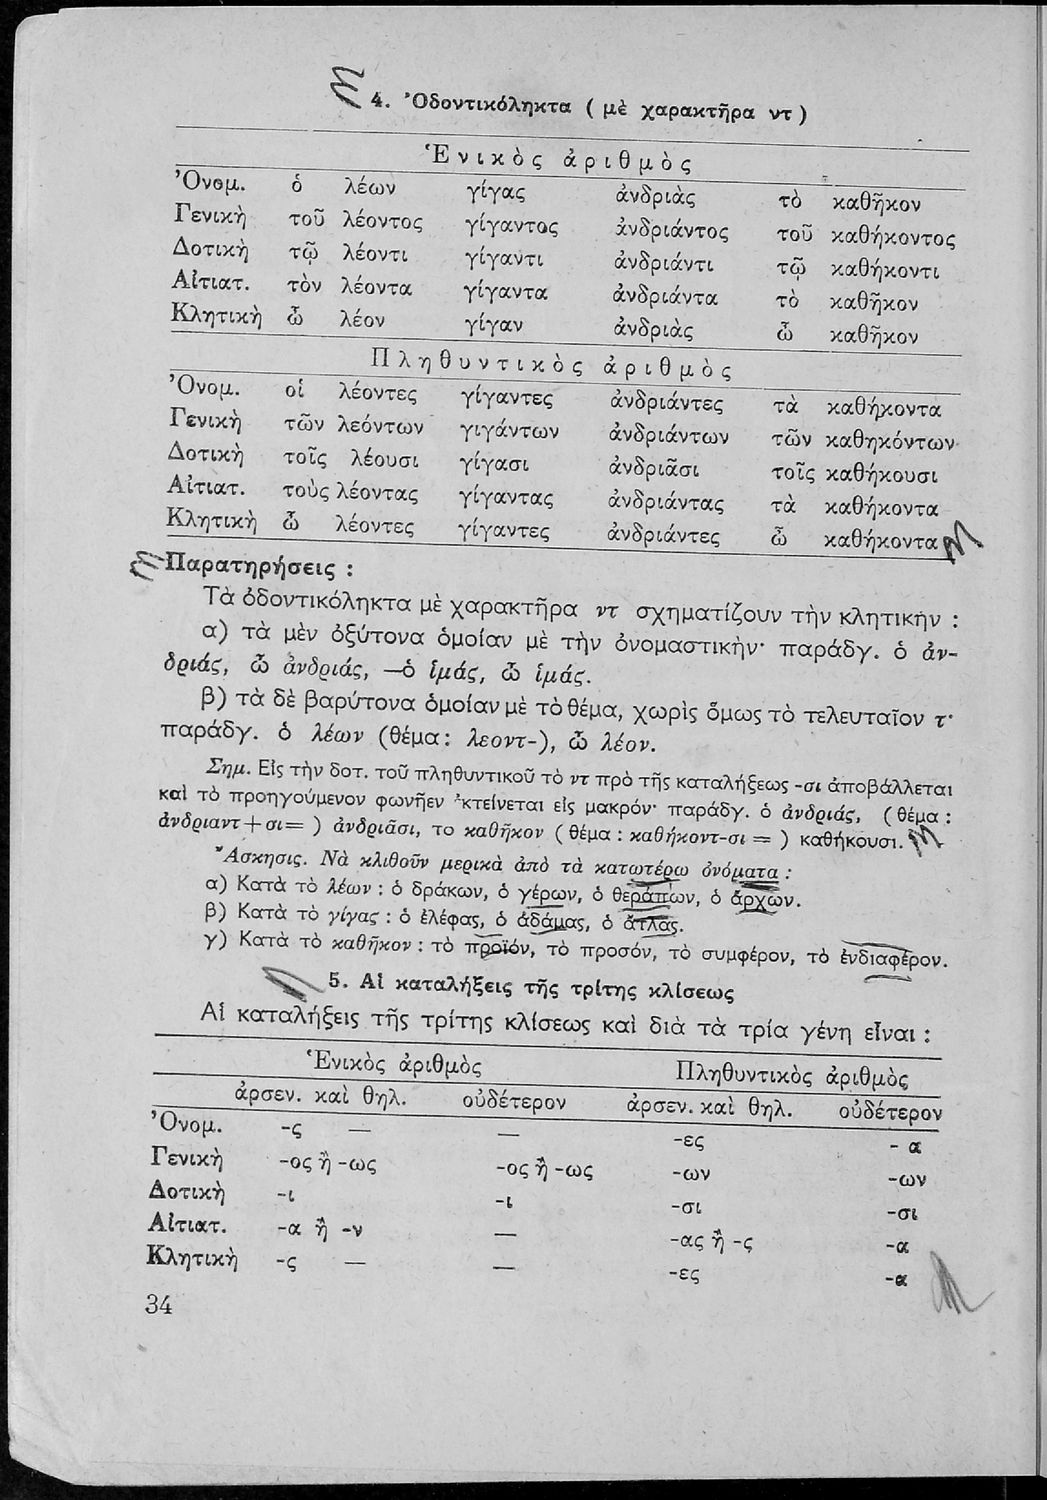 4. Ὀδοντικόληκτα ( μὲ χαρακτῆρα ντ )
Ἑνικὸς ἀριθμὸς
Ὀνομ. ὁ λέων γίγας ἀνδριὰς τὸ καθῆκον
Γενικὴ τοῦ λέοντος γίγαντος ἀνδριάντος τοῦ καθήκοντος
Δοτικὴ τῷ λέοντι γίγαντι ἀνδριάντι τῷ καθήκοντι
Αἰτιατ. τὸν λέοντα γίγαντα ἀνδριάντα τὸ καθῆκον
Κλητικὴ ὦ λέον γίγαν ἀνδριὰς ὦ καθῆκον
Πληθυντικὸς ἀριθμὸς
Ὀνομ. οἱ λέοντες γίγαντες ἀνδριάντες τὰ καθήκοντα
Γενικὴ τῶν λεόντων γιγάντων ἀνδριάντων τῶν καθηκόντων
Δοτικὴ τοῖς λέουσι γίγασι ἀνδριᾶσι τοῖς καθήκουσι
Αἰτιατ. τοὺς λέοντας γίγαντας ἀνδριάντας τὰ καθήκοντα
Κλητικὴ ὦ λέοντες γίγαντες ἀνδριάντες ὦ καθήκοντα
Παρατηρήσεις :
Τὰ ὀδοντικόληκτα μὲ χαρακτῆρα ντ σχηματίζουν τὴν κλητικήν :
α) τὰ μὲν ὀξύτονα ὁμοίαν μὲ τὴν ὀνομαστικὴν· παράδγ. ὁ ἀν-
δριάς, ὦ ἀνδριάς, —ὁ ἱμάς, ὦ ἱμάς.
β) τὰ δὲ βαρύτονα ὁμοίαν μὲ τὸ θέμα, χωρὶς ὅμως τὸ τελευταῖον τ·
παράδγ. ὁ λέων (θέμα: λεοντ-), ὦ λέον.
Σημ. Εἰς τὴν δοτ. τοῦ πληθυντικοῦ τὸ ντ πρὸ τῆς καταλήξεως -σι ἀποβάλλεται
καὶ τὸ προηγούμενον φωνῆεν ἐκτείνεται εἰς μακρόν· παράδγ. ὁ ἀνδριάς, ( θέμα :
ἀνδριαντ+σι= ) ἀνδριᾶσι, το καθῆκον ( θέμα : καθήκοντ-σι = ) καθήκουσι.
Ἄσκησις. Νὰ κλιθοῦν μερικὰ ἀπὸ τὰ κατωτέρω ὀνόματα :
α) Κατὰ τὸ λέων : ὁ δράκων, ὁ γέρων, ὁ θεράπων, ὁ ἄρχων.
β) Κατὰ τὸ γίγας : ὁ ἐλέφας, ὁ ἀδάμας, ὁ ἄτλας.
γ) Κατὰ τὸ καθῆκον : τὸ προϊόν, τὸ προσόν, τὸ συμφέρον, τὸ ἐνδιαφέρον.
5. Αἱ καταλήξεις τῆς τρίτης κλίσεως
Αἱ καταλήξεις τῆς τρίτης κλίσεως καὶ διὰ τὰ τρία γένη εἶναι :
Ἑνικὸς ἀριθμὸς Πληθυντικὸς ἀριθμὸς
ἀρσεν. καὶ θηλ. οὐδέτερον ἀρσεν. καὶ θηλ. οὐδέτερον
Ὀνομ. -ς — — -ες - α
Γενικὴ -ος ἢ -ως -ος ἢ -ως -ων -ων
Δοτικὴ -ι -ι -σι -σι
Αἰτιατ. -α ἢ -ν — -ας ἢ -ς -α
Κλητικὴ -ς — — -ες -α
34